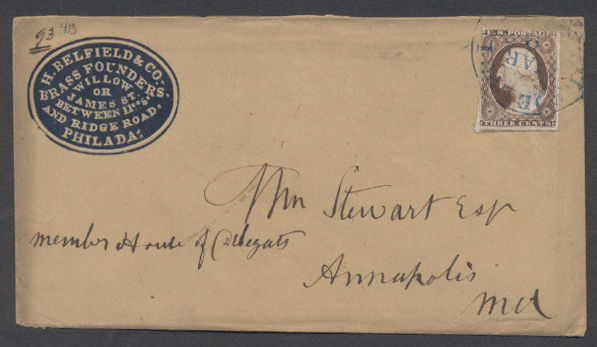 93 413
H. BELFIELD & CO.
BRASS FOUNDERS.
WILLOW
OR
JAMES ST.
BETWEEN 11TH ST.
AND RIDGE ROAD,
PHILADA.
U.S. POSTAGE
THREE CENTS
Wm Stewart Esq
member House of Delegats
Annapolis
Md